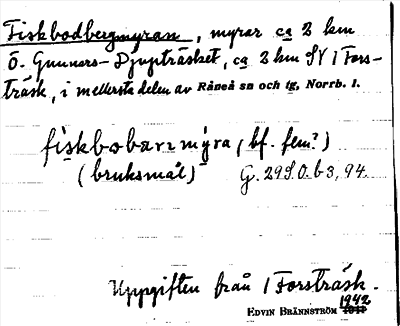 Fiskbodbergmyran, myrar ca 2 km
Ö. Gunnars-Djupträsket, ca 2 km SV 1 Fors-
träsk, i mellersta delen av Råneå sn och tg, Norrb. l.
fiskbobarzmýra (bf. fem?)
(bruksmål) G. 29S.O.b3, 94.
Uppgiften från 1 Forsträsk.
1942
EDVIN BRÄNNSTRÖM 1941